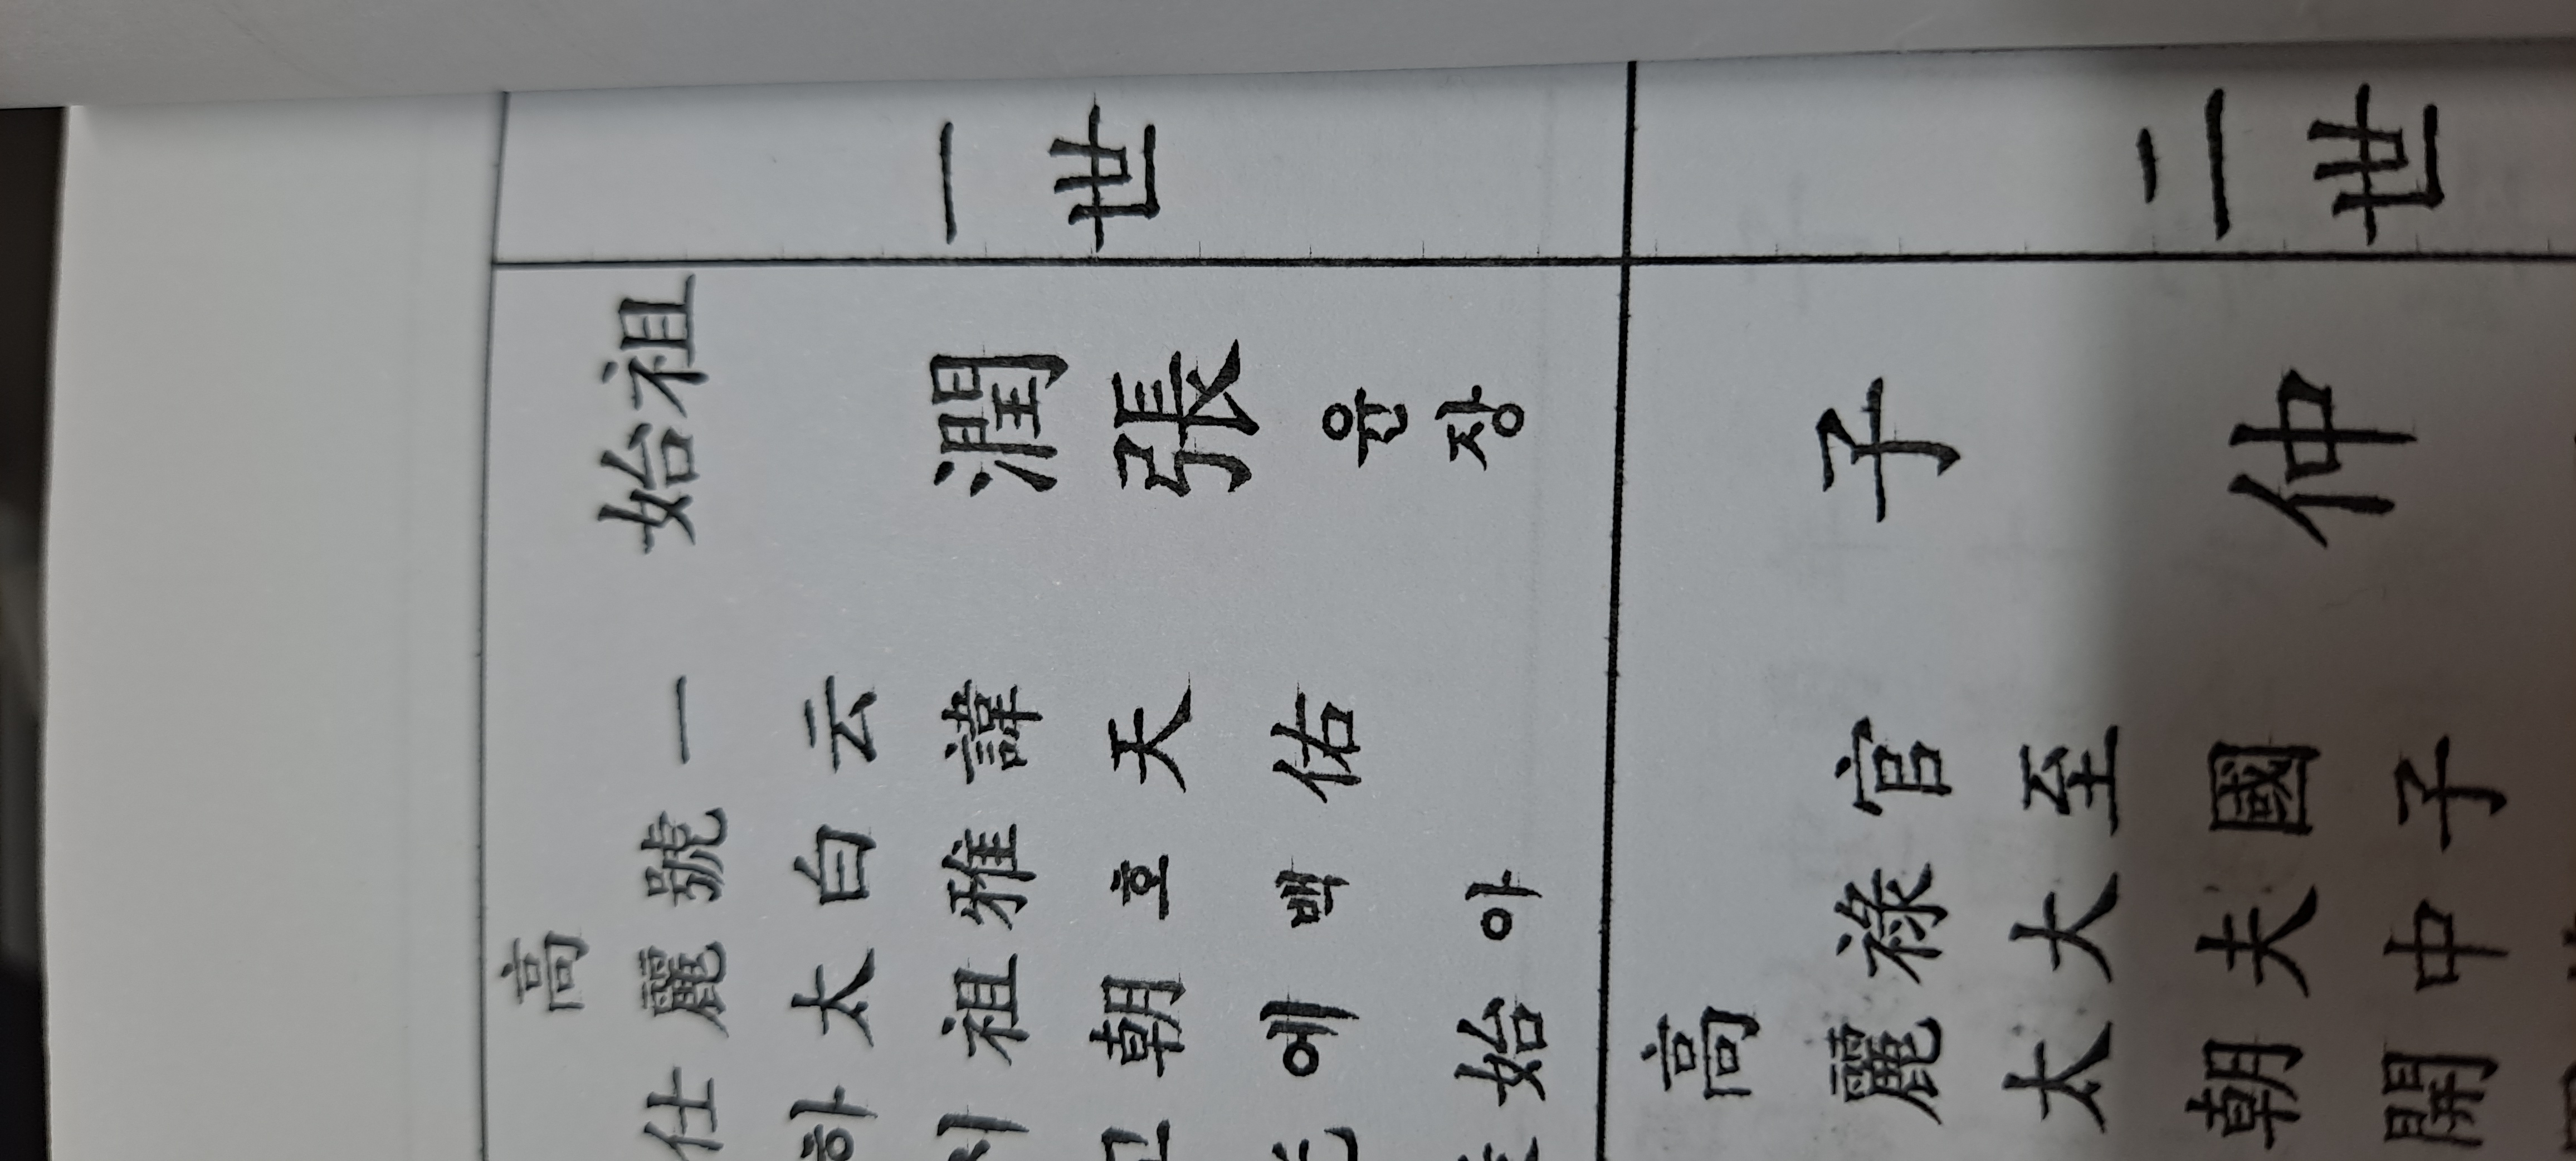 一世
始祖
潤張
윤장
一云諱天佑
號白雅호백아
高麗太祖朝에始
仕하
二世
子仲
官至國子
祿大夫中
高麗太朝開